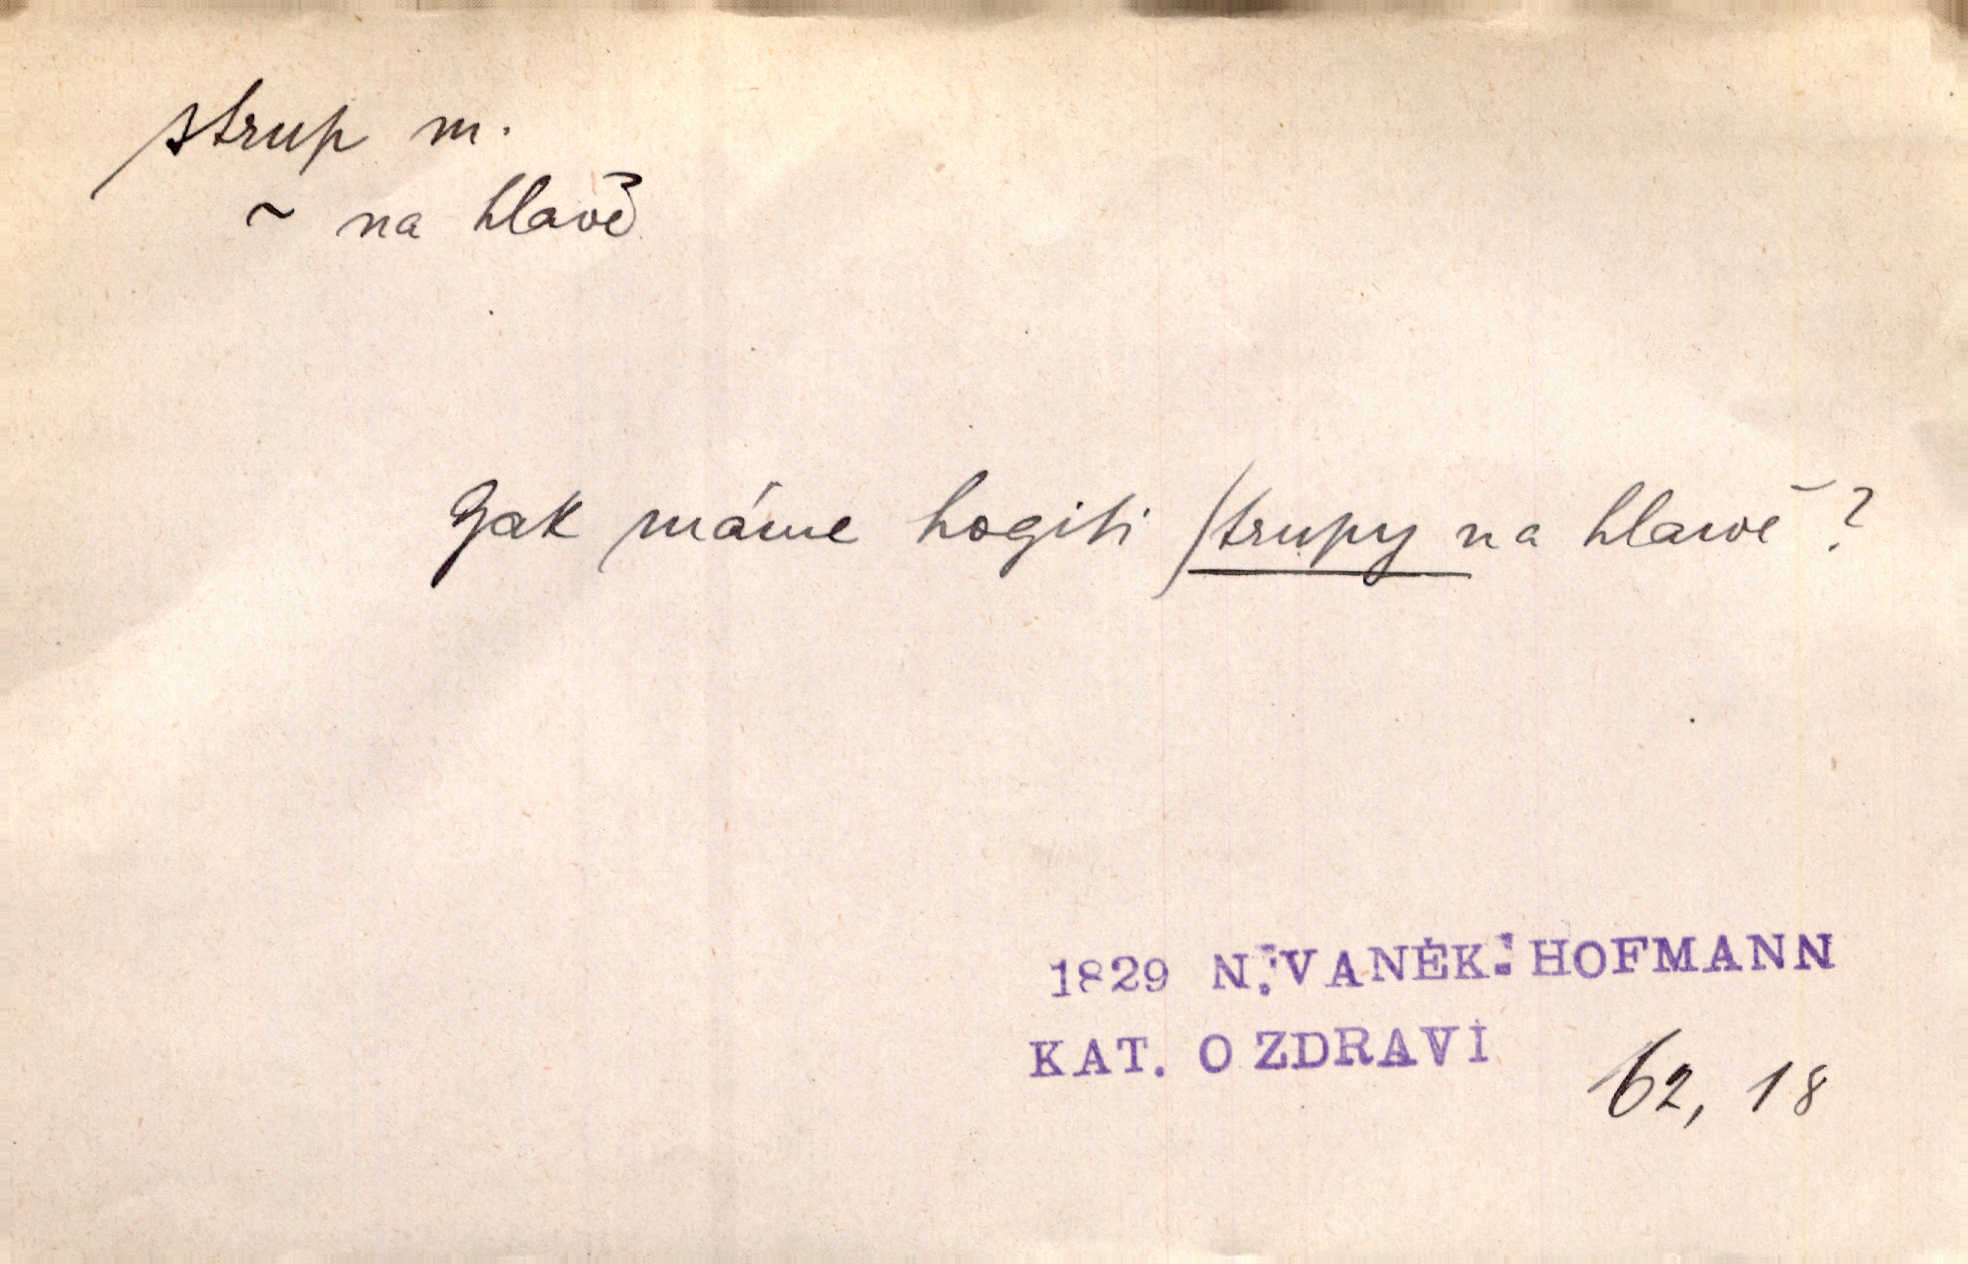 strup m.
~ na hlavě
Gak máme hogiti ſtrupy na hlawě?
1829 N.:VANĚK:HOFMANN
KAT. O ZDRAVÍ
62, 18